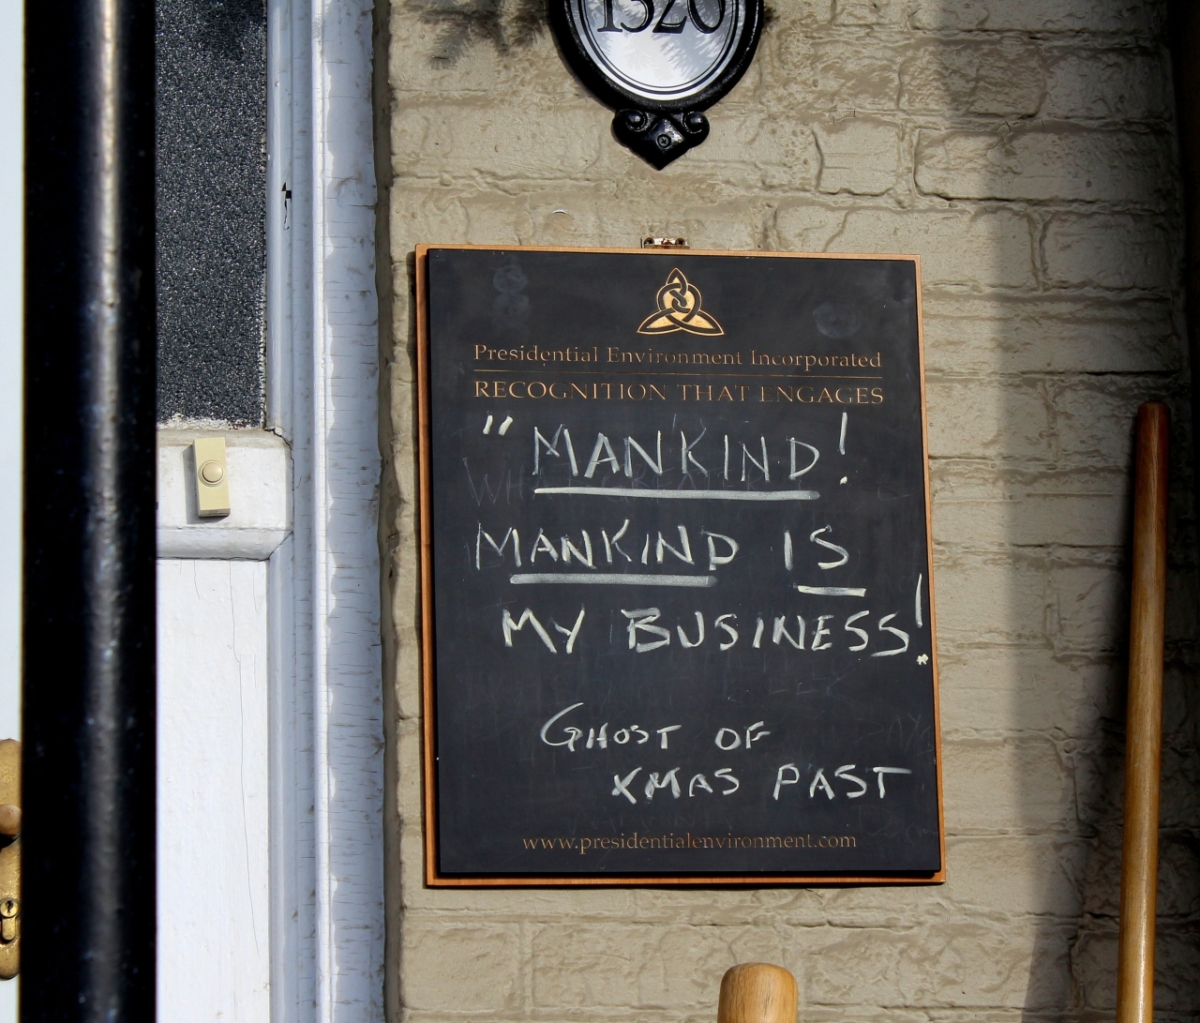 1320
Presidential Environment Incorporated
RECOGNITION THAT ENGAGES
"MANKIND!
MANKIND IS
MY BUSINESS!
GHOST OF
XMAS PAST
www.presidentialenvironment.com